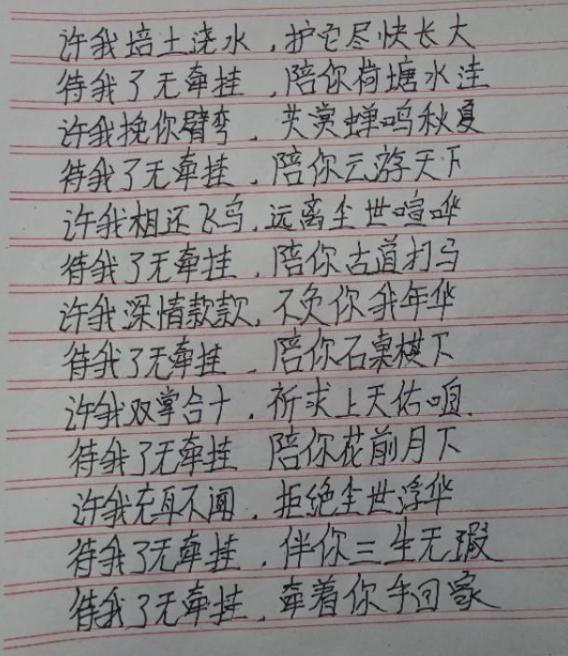 许我培土浇水,护它尽快长大
待我了无牵挂,陪你荷塘水洼
许我挽你臂弯,共赏蝉鸣秋夏
待我了无牵挂,陪你云游天下
许我相还飞鸟,远离尘世喧哗
待我了无牵挂,陪你古道打马
许我深情款款,不负你我年华
待我了无牵挂,陪你石桌棋下
许我双掌合十,祈求上天佑咱.
待我了无牵挂 陪你花前月下
许我充耳不闻,拒绝尘世浮华
待我了无牵挂,伴你三生无瑕
待我了无牵挂,牵着你手回家